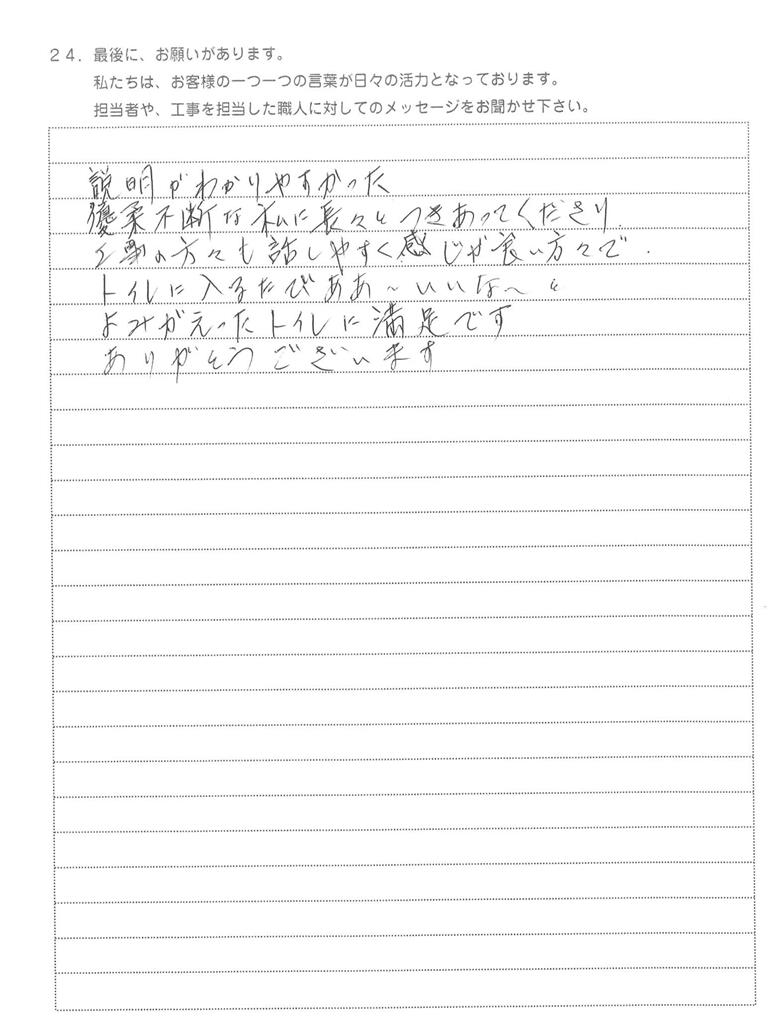 24. 最後に、お願いがあります。
私たちは、お客様の一つ一つの言葉が日々の活力となっております。
担当者や、工事を担当した職人に対してのメッセージをお聞かせ下さい。
説明がわかりやすかった
優柔不断な私に長々とつきあってくださり、
工事の方々も話しやすく感じが良い方々で、
トイレに入るたびああ~いいな~と
よみがえったトイレに満足です
ありがとうございます